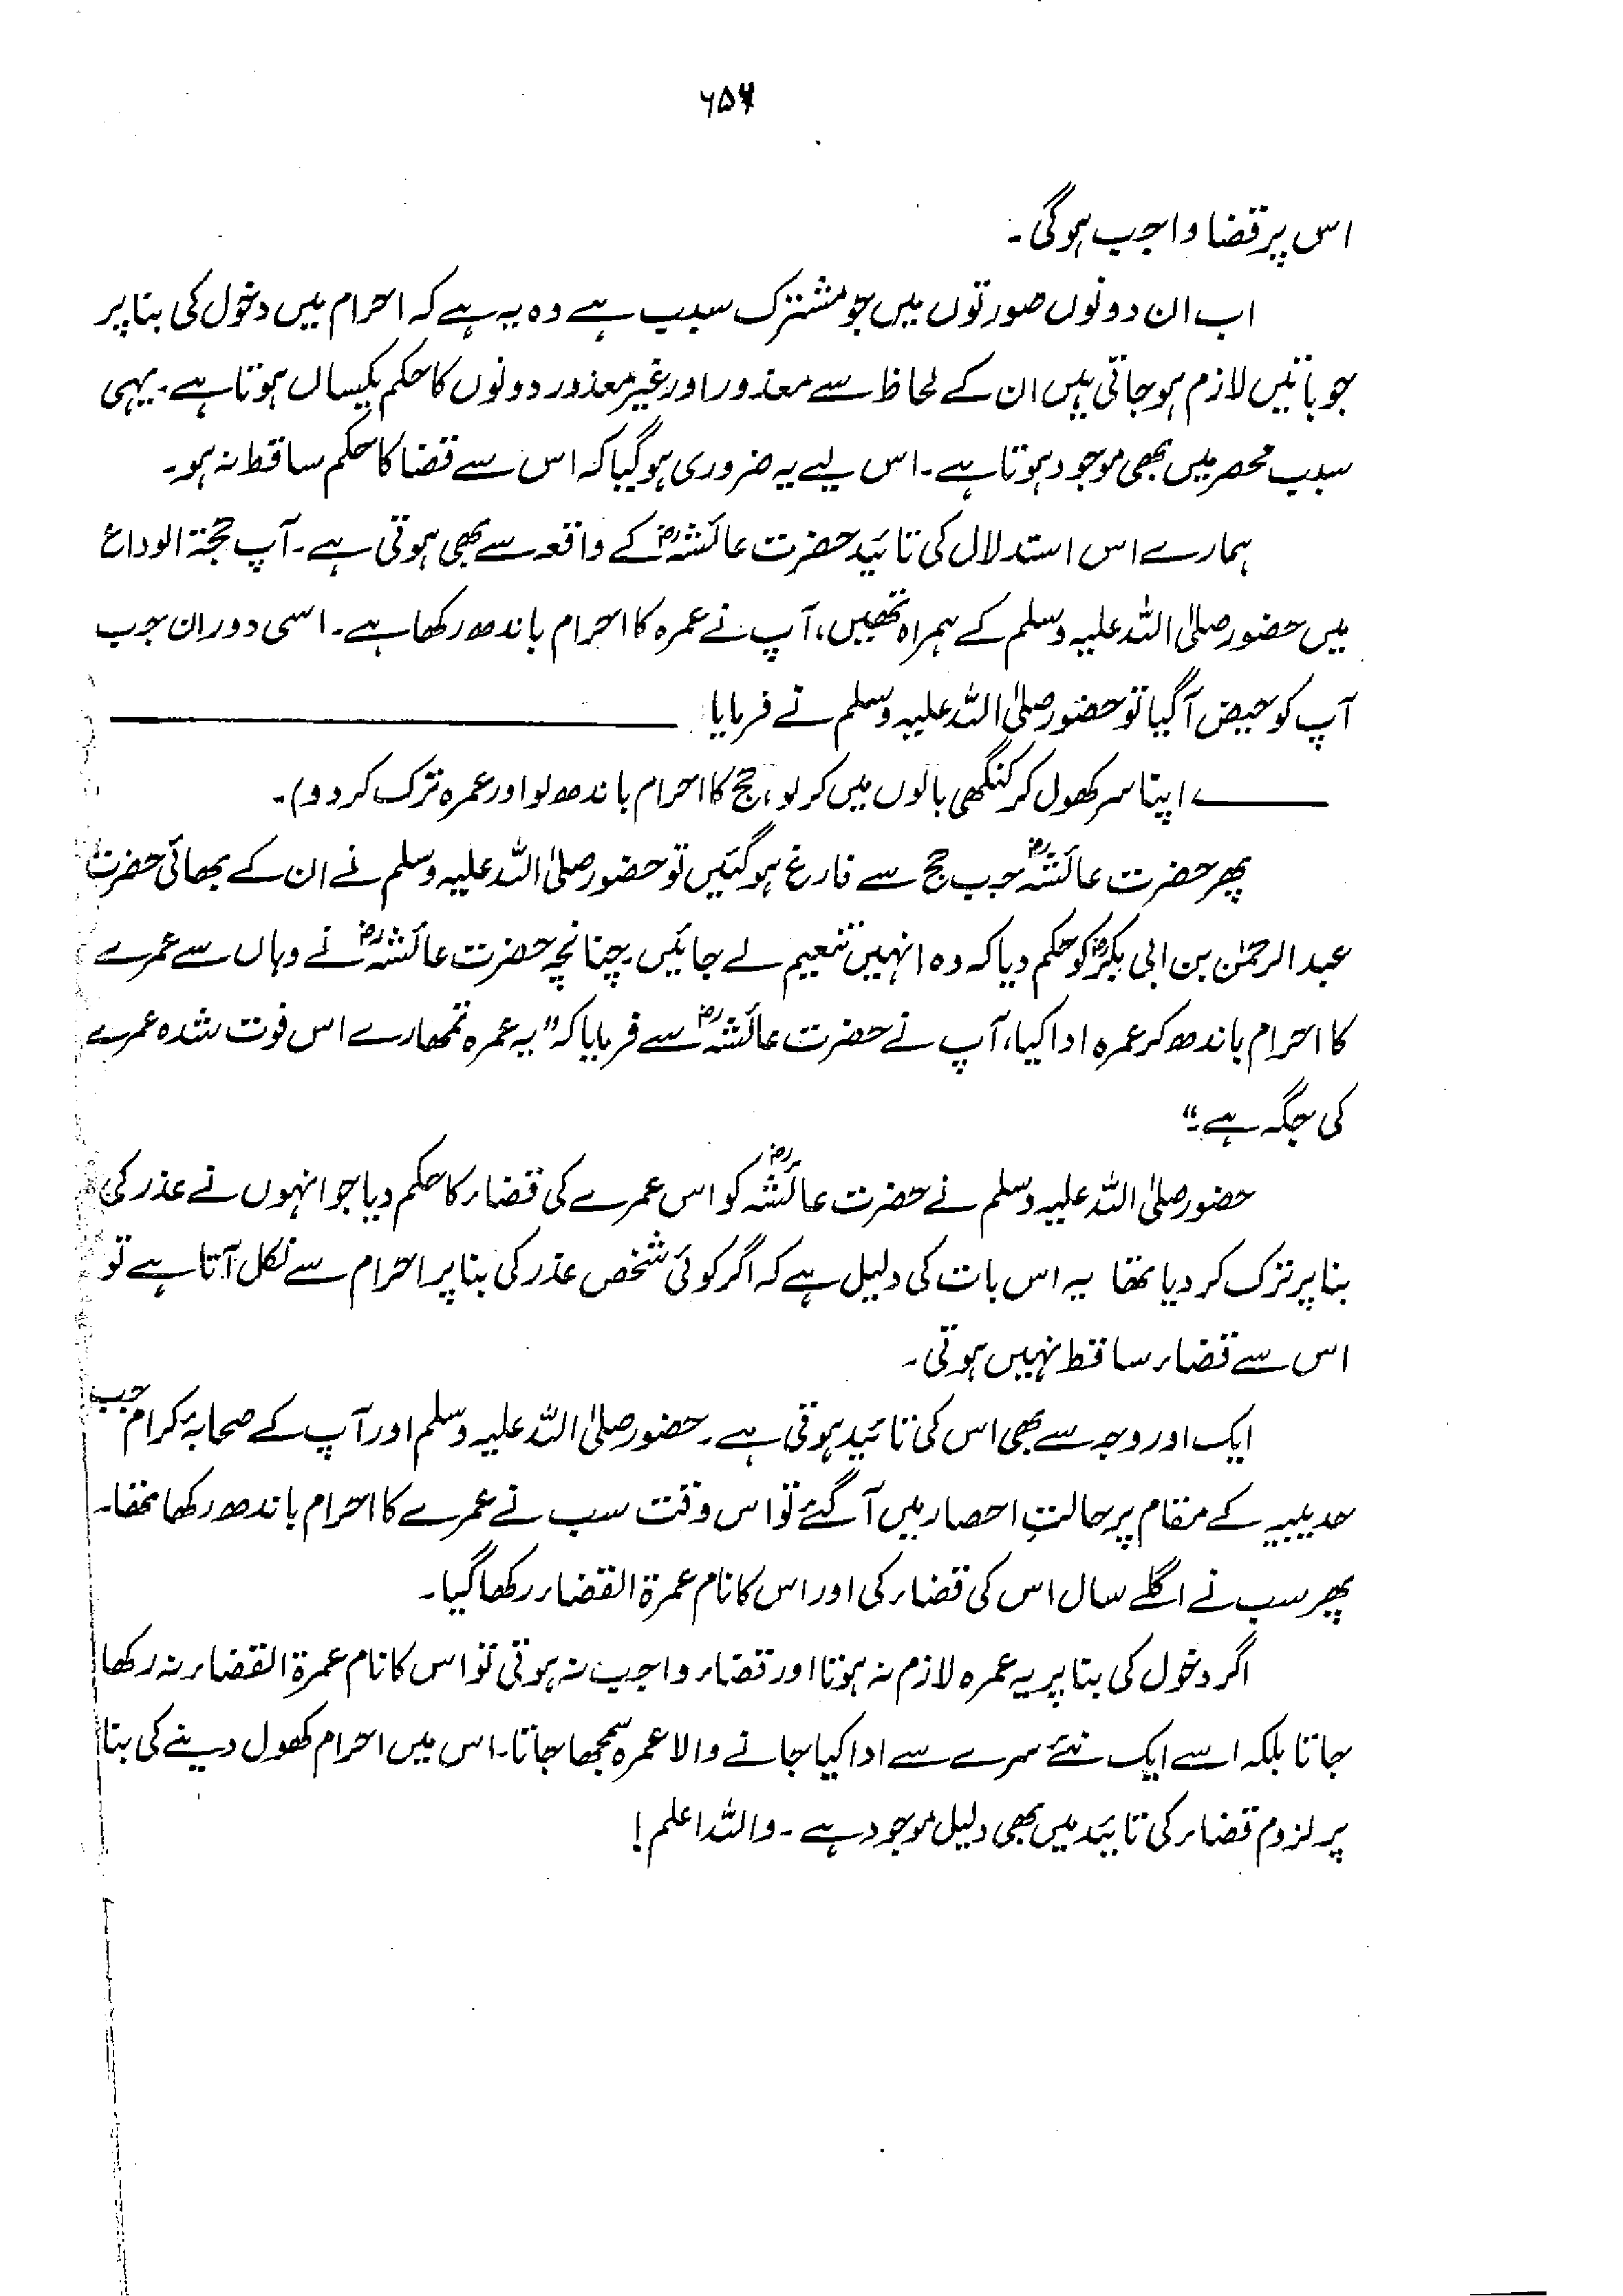 ۶۵۷
اس پر قضا واجب ہوگی۔
اب ان دونوں صورتوں میں جو مشترک سبب ہے وہ یہ ہے کہ احرام میں دخول کی بنا پر
جو باتیں لازم ہوجاتی ہیں ان کے لحاظ سے معذور اور غیر معذور دونوں کا حکم یکساں ہوتا ہے۔ یہی
سبب محصر میں بھی موجود ہوتا ہے۔ اس لیے یہ ضروری ہوگیا کہ اس سے قضا کا حکم ساقط نہ ہو۔
ہمارے اس استدلال کی تائید حضرت عائشہؓ کے واقعہ سے بھی ہوتی ہے۔ آپ حجۃ الوداع
میں حضور صلی اللہ علیہ وسلم کے ہمراہ تھیں، آپ نے عمرہ کا احرام باندھ رکھا ہے۔ اسی دوران جب
آپ کو حیض آگیا تو حضور صلی اللہ علیہ وسلم نے فرمایا
اپنا سر کھول کر کنگھی بالوں میں کرلو، حج کا احرام باندھ لو اور عمرہ ترک کردو)۔
پھر حضرت عائشہؓ جب حج سے فارغ ہوگئیں تو حضور صلی اللہ علیہ وسلم نے ان کے بھائی حضرت
عبدالرحمٰن بن ابی بکرؓ کو حکم دیا کہ وہ انہیں تنعیم لے جائیں۔ چنانچہ حضرت عائشہؓ نے وہاں سے عمرے
کا احرام باندھ کر عمرہ ادا کیا، آپ نے حضرت عائشہؓ سے فرمایا کہ "یہ عمرہ تمھارے اس فوت شدہ عمرے
کی جگہ ہے۔"
حضور صلی اللہ علیہ وسلم نے حضرت عائشہؓ کو اس عمرے کی قضاء کا حکم دیا جو انہوں نے عذر کی
بنا پر ترک کردیا تھا یہ اس بات کی دلیل ہے کہ اگر کوئی شخص عذر کی بنا پر احرام سے نکل آتا ہے تو
اس سے قضاء ساقط نہیں ہوتی۔
ایک اور وجہ سے بھی اس کی تائید ہوتی ہے۔ حضور صلی اللہ علیہ وسلم اور آپ کے صحابۂ کرام جب
حدیبیہ کے مقام پر حالتِ احصار میں آگئے تو اس وقت سب نے عمرے کا احرام باندھ رکھا تھا۔
پھر سب نے اگلے سال اس کی قضاء کی اور اس کا نام عمرۃ القضاء رکھا گیا۔
اگر دخول کی بنا پر یہ عمرہ لازم نہ ہوتا اور قضاء واجب نہ ہوتی تو اس کا نام عمرۃ القضاء نہ رکھا
جاتا بلکہ اسے ایک نئے سرے سے ادا کیا جانے والا عمرہ سمجھا جاتا۔ اس میں احرام کھول دینے کی بنا
پر لزوم قضاء کی تائید میں بھی دلیل موجود ہے۔ واللہ اعلم!